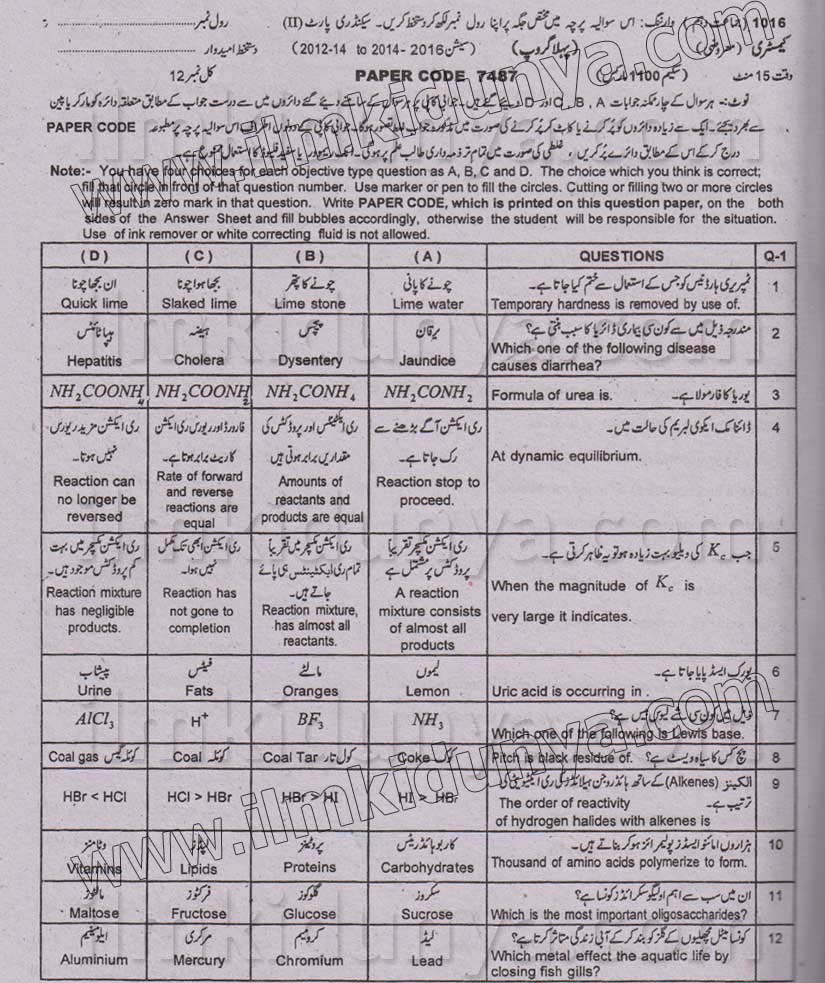 1016 (جماعت دہم) وارننگ: اس سوالیہ پرچہ میں مختص جگہ پر اپنا رول نمبر لکھ کر دستخط کریں۔ سیکنڈری پارٹ (II) رول نمبر
کیمسٹری (معروضی) (پہلا گروپ) (سیشن 2016-2014 to 2012-14) دستخط امیدوار
وقت 15 منٹ (سکیم 1100 مارکس) PAPER CODE 7487 کل نمبر 12
نوٹ:- ہر سوال کے چار ممکنہ جوابات A ، B ، C اور D دیئے گئے ہیں۔ جوابی کاپی پر ہر سوال کے سامنے دیئے گئے دائروں میں سے درست جواب کے مطابق متعلقہ دائرہ کو مارکر یا پین
سے بھر دیجئے۔ ایک سے زیادہ دائروں کو پُر کرنے یا کاٹ کر پُر کرنے کی صورت میں مذکورہ جواب غلط تصور ہو گا۔ جوابی کاپی کے دونوں اطراف اس سوالیہ پرچہ پر مطبوعہ PAPER CODE
درج کر کے اس کے مطابق دائرے پُر کریں، غلطی کی صورت میں تمام تر ذمہ داری طالب علم پر ہو گی۔ انک ریموور یا سفید فلیوڈ کا استعمال ممنوع ہے۔
Note:- You have four choices for each objective type question as A, B, C and D. The choice which you think is correct;
fill that circle in front of that question number. Use marker or pen to fill the circles. Cutting or filling two or more circles
will result in zero mark in that question. Write PAPER CODE, which is printed on this question paper, on the both
sides of the Answer Sheet and fill bubbles accordingly, otherwise the student will be responsible for the situation.
Use of ink remover or white correcting fluid is not allowed.
( D ) ( C ) ( B ) ( A ) QUESTIONS Q-1
ان بجھا چونا بجھا ہوا چونا چونے کا پتھر چونے کا پانی ٹمپریری ہارڈنیس کو جس کے استعمال سے ختم کیا جاتا ہے۔ 1
Quick lime Slaked lime Lime stone Lime water Temporary hardness is removed by use of.
ہیپاٹائٹس ہیضہ پیچس یرقان مندرجہ ذیل میں سے کون سی بیماری ڈائریا کا سبب بنتی ہے؟ 2
Hepatitis Cholera Dysentery Jaundice Which one of the following disease
causes diarrhea?
NH₂COONH₄ NH₂COONH₂ NH₂CONH₄ NH₂CONH₂ Formula of urea is. یوریا کا فارمولا ہے۔ 3
ری ایکشن مزید ریورس فارورڈ اور ریورس ری ایکشن ری ایکٹنٹس اور پروڈکٹس کی ری ایکشن آگے بڑھنے سے ڈائنامک ایکوی لبریم کی حالت میں۔ 4
نہیں ہوتا۔ کا ریٹ برابر ہوتا ہے۔ مقداریں برابر ہوتی ہیں رک جاتا ہے۔
Reaction can no longer be reversed
Rate of forward and reverse reactions are equal
Amounts of reactants and products are equal
Reaction stop to proceed.
At dynamic equilibrium.
ری ایکشن مکسچر میں بہت کم پروڈکٹس موجود ہیں۔
ری ایکشن ابھی تک مکمل نہیں ہوا۔
ری ایکشن مکسچر میں تقریباً تمام ری ایکٹینٹس ہی پائے جاتے ہیں۔
ری ایکشن مکسچر تقریباً پروڈکٹس پر مشتمل ہے
جب Kc کی ویلیو بہت زیادہ ہو تو یہ ظاہر کرتی ہے۔ 5
Reaction mixture has negligible products.
Reaction has not gone to completion
Reaction mixture, has almost all reactants.
A reaction mixture consists of almost all products
When the magnitude of Kc is
very large it indicates.
پیشاب فیٹس مالٹے لیموں یورک ایسڈ پایا جاتا ہے۔ 6
Urine Fats Oranges Lemon Uric acid is occurring in .
AlCl₃ H⁺ BF₃ NH₃ 7
Which one of the following is Lewis base.
Coal gas کوئلہ گیس Coal کوئلہ Coal Tar کول تار Coke کوک Pitch is black residue of. پچ کس کا سیاہ ویسٹ ہے؟ 8
HBr < HCl HCl > HBr HBr > HI HI > HBr الکینز (Alkenes) کے ساتھ ہائڈروجن ہیلائڈز کی ری ایکٹیویٹی کی 9
The order of reactivity ترتیب ہے۔
of hydrogen halides with alkenes is
وٹامنز لپڈز پروٹینز کاربوہائڈریٹس ہزاروں امائنو ایسڈز پولیمرائز ہو کر بناتے ہیں۔ 10
Vitamins Lipids Proteins Carbohydrates Thousand of amino acids polymerize to form.
مالٹوز فرکٹوز گلوکوز سکروز ان میں سب سے اہم اولیگوسکرائڈز کونسا ہے؟ 11
Maltose Fructose Glucose Sucrose Which is the most important oligosaccharides?
ایلومینیم مرکری کرومیم لیڈ کونسا میٹل مچھلیوں کے گلز کو بند کر کے آبی زندگی متاثر کرتا ہے؟ 12
Aluminium Mercury Chromium Lead Which metal effect the aquatic life by
closing fish gills?
www.ilmkidunya.com
www.ilmkidunya.com